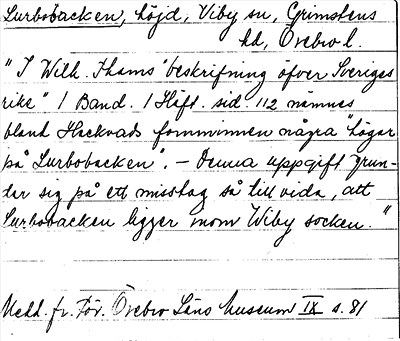 Lurbobacken, höjd, Viby sn, Grimstens
hd, Örebro l.
"I Wilh. Thams "beskrifning öfver Sveriges
rike" 1 Band. 1 Häft. sid. 112 nämnes
bland Hackvads fornminnen några "högar
på Lurbobacken". – Denna uppgift grun-
dar sig på ett misstag så till vida, att
Lurbobacken ligger inom Wiby socken."
Medd. fr. För. Örebro Läns Museum IX s. 81